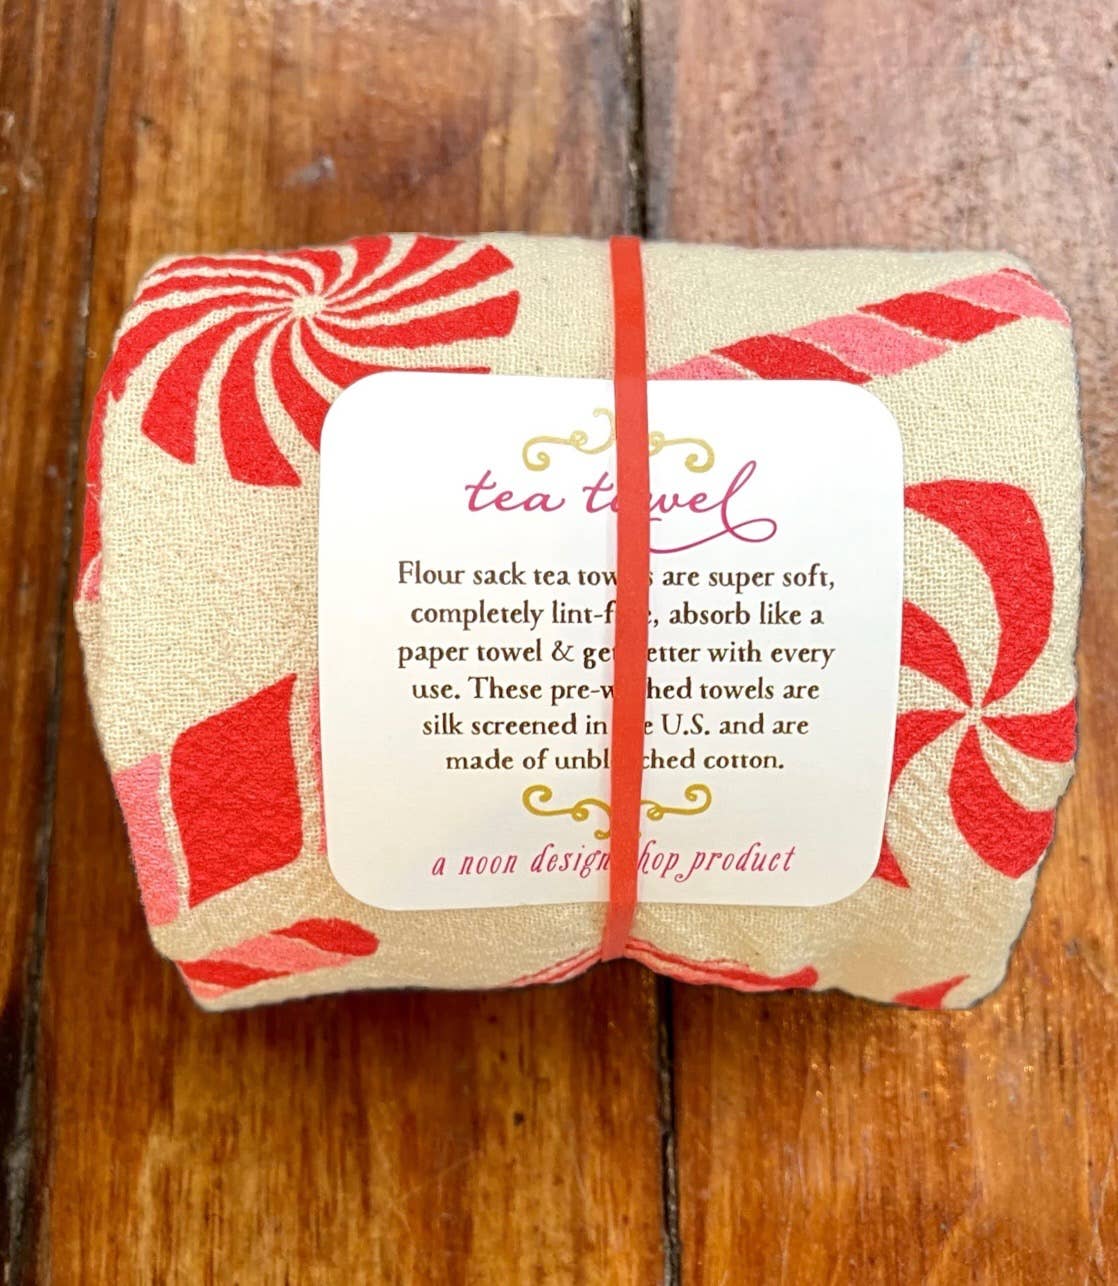 tea towel
Flour sack tea towels are super soft,
completely lint-free, absorb like a
paper towel & get better with every
use. These pre-washed towels are
silk screened in the U.S. and are
made of unbleached cotton.
a noon design shop product